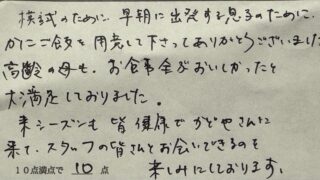 模試のために、早朝に出発する息子のために、
かたこご飯を用意して下さってありがとうございました
高齢の母も、お食事全部おいしかったと
大満足しておりました。
来シーズンも皆健康でかどやさんに
来て、スタッフの皆さんとお会いできるのを
10点満点で 10 点 楽しみにしております。